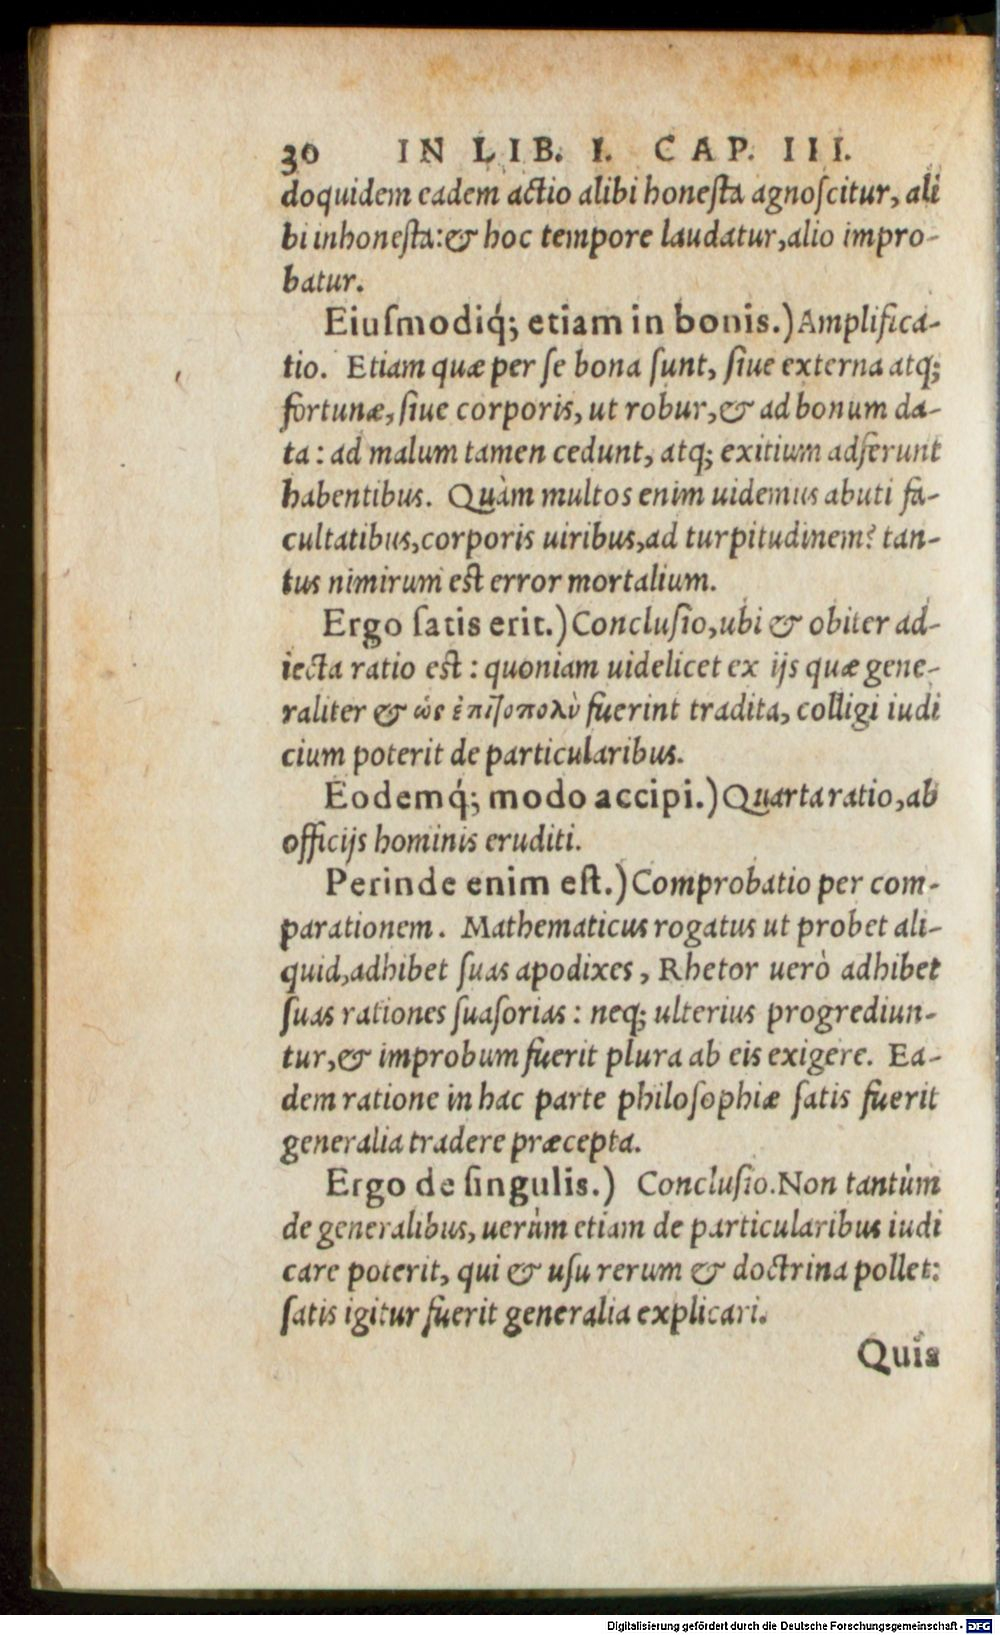 30 IN LIB. I. CAP. III.
doquidem eadem actio alibi honeſta agnoſcitur, ali
bi inhoneſta:& hoc tempore laudatur,alio impro-
batur.
Eiuſmodiq́; etiam in bonis.) Amplifica-
tio. Etiam quæ per ſe bona ſunt, ſiue externa atq;
fortunæ, ſiue corporis, ut robur,& ad bonum da-
ta: ad malum tamen cedunt, atq; exitium adferunt
habentibus. Quàm multos enim uidemus abuti fa-
cultatibus,corporis uiribus,ad turpitudinem? tan-
tus nimirum est error mortalium.
Ergo ſatis erit.) Concluſio,ubi & obiter ad-
iecta ratio est: quoniam uidelicet ex ijs quæ gene-
raliter & ὡς ἐπιτοπολὺ fuerint tradita, colligi iudi
cium poterit de particularibus.
Eodemq́; modo accipi.) Quarta ratio,ab
officijs hominis eruditi.
Perinde enim eſt.) Comprobatio per com-
parationem. Mathematicus rogatus ut probet ali-
quid,adhibet ſuas apodixes, Rhetor uerò adhibet
ſuas rationes ſuaſorias: neq; ulterius progrediun-
tur,& improbum fuerit plura ab eis exigere. Ea-
dem ratione in hac parte philoſophiæ ſatis fuerit
generalia tradere præcepta.
Ergo de ſingulis.) Concluſio.Non tantùm
de generalibus, uerùm etiam de particularibus iudi
care poterit, qui & uſu rerum & doctrina pollet:
ſatis igitur fuerit generalia explicari.
Quis
Digitalisierung gefördert durch die Deutsche Forschungsgemeinschaft - DFG